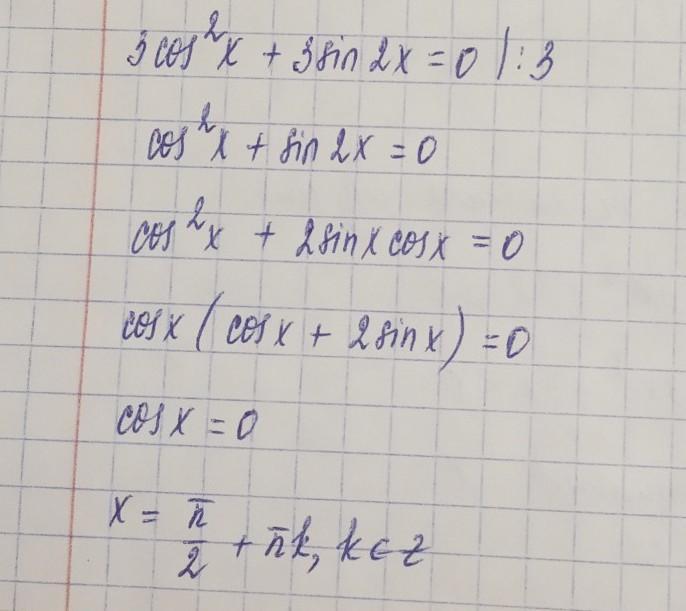 3cos²x + 3sin2x = 0 |:3
cos²x + sin2x = 0
cos²x + 2sinxcosx = 0
cosx(cosx + 2sinx) = 0
cosx = 0
x = π/2 + πk, k ∈ z